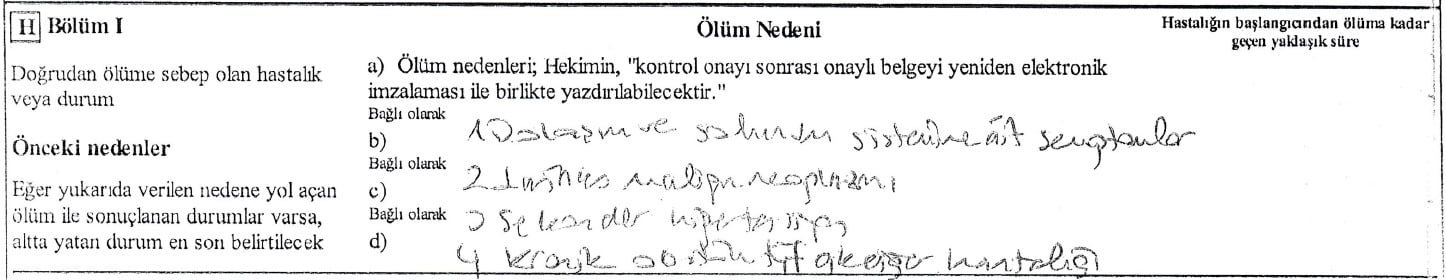 H Bölüm I
Ölüm Nedeni
Hastalığın başlangıcından ölüma kadar
geçen yaklaşık süre
Doğrudan ölüme sebep olan hastalık
veya durum
a) Ölüm nedenleri; Hekimin, "kontrol onayı sonrası onaylı belgeyi yeniden elektronik
imzalaması ile birlikte yazdırılabilecektir."
Bağlı olarak
b) 1 Dolaşım ve solunum sistemine ait semptomlar
Önceki nedenler
Bağlı olarak
c) 2 malign neoplazmı
Eğer yukarıda verilen nedene yol açan
ölüm ile sonuçlanan durumlar varsa,
altta yatan durum en son belirtilecek
Bağlı olarak 3 Sekonder hipertansiyon
d) 4 kronik obstrüktif akciğer hastalığı